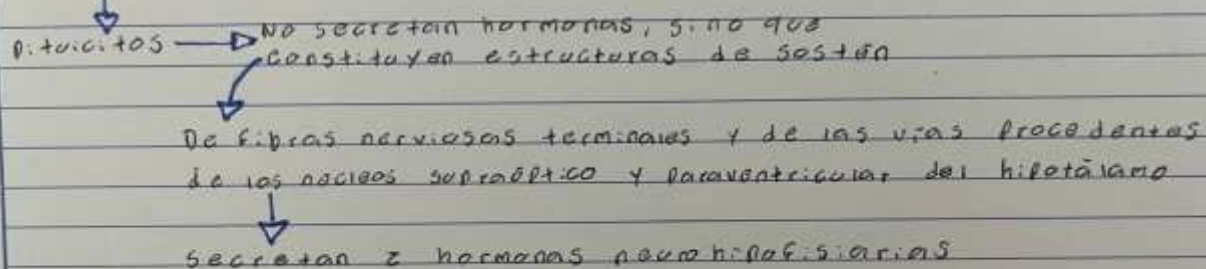 Pituicitos → No secretan hormonas, sino que
constituyen estructuras de sostén
De fibras nerviosas terminales y de las vias procedentes
de los nucleos supraóptico y paraventricular del hipotálamo
secretan 2 hormonas neurohipofisiarias